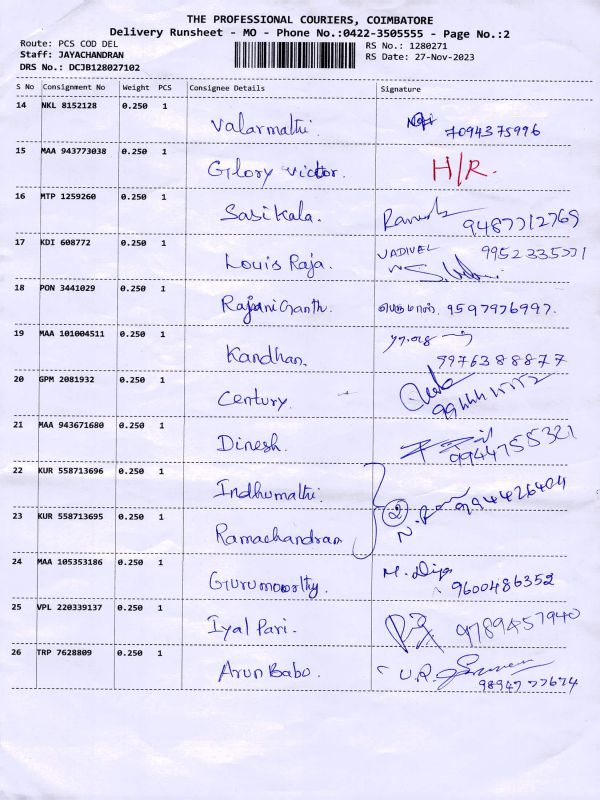 THE PROFESSIONAL COURIERS, COIMBATORE
Delivery Runsheet - MO - Phone No.:0422-3505555 - Page No.:2
Route: PCS COD DEL
RS No.: 1280271
Staff: JAYACHANDRAN
RS Date: 27-Nov-2023
DRS No.: DCJB128027102
S No Consignment No Weight PCS Consignee Details Signature
14 NKL 8152128 0.250 1 Valarmathi. 7094375996
15 MAA 943773038 0.250 1 Glory Victor. H/R.
16 MTP 1259260 0.250 1 Sasikala. Ramesh 9487712769
17 KDI 608772 0.250 1 Louis Raja. VADIVEL 9952335771
18 PON 3441029 0.250 1 RajaniGanth. பெருமாள். 9597976997.
19 MAA 101004511 0.250 1 Kandhan. 9976388877
20 GPM 2081932 0.250 1 Century.
21 MAA 943671680 0.250 1 Dinesh. 9944755321
22 KUR 558713696 0.250 1 Indhumathi. 9944426404
② 
23 KUR 558713695 0.250 1 Ramachandran
24 MAA 105353186 0.250 1 Gurumoorthy. 9600486352
25 VPL 220339137 0.250 1 Iyal Pari. 9789457940
26 TRP 7628809 0.250 1 Arun Babo. U.R. 9894777674